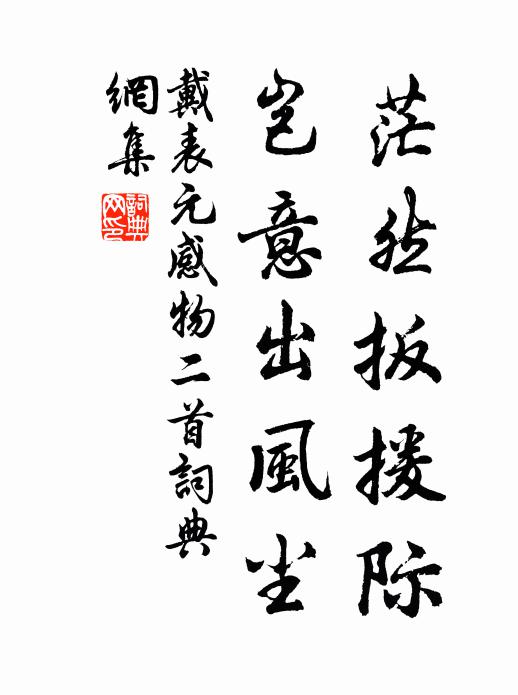 茫然扳援际
岂意出風尘
戴表元感物二首詞典
網集
詞典网印